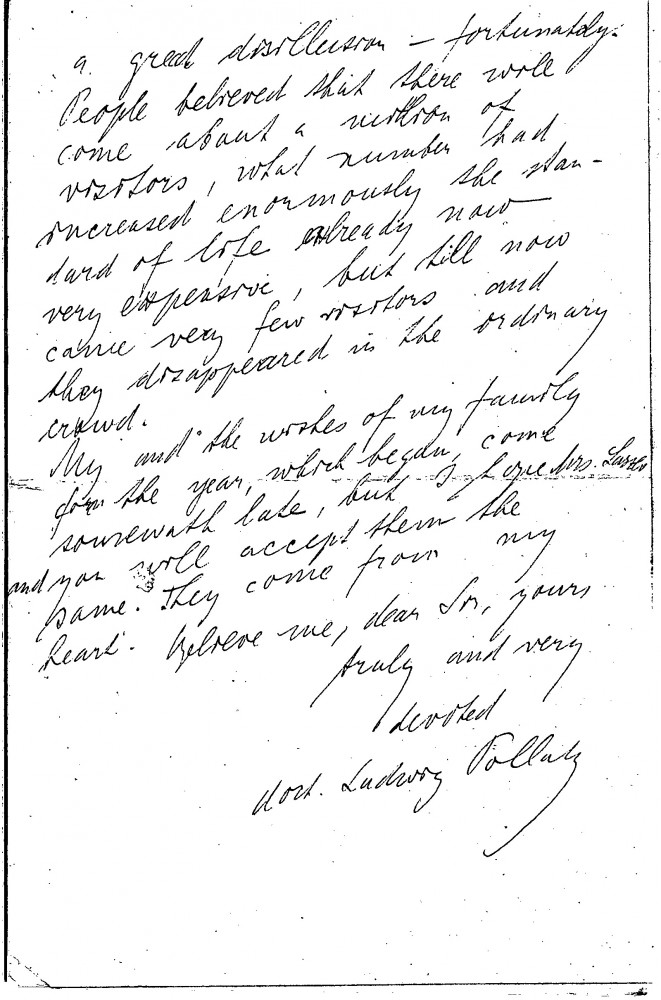 a great disillusion — fortunately.
People believed that there will
come about a million of
visitors, what number had
increased enormously the stan-
dard of life already now
very expensive, but till now
came very few visitors and
they disappeared in the ordinary
crowd.
My and the wishes of my family
for the year, which began, come
somewath late, but I hope Mrs.
and you will accept them the
same. They come from my
heart. Believe me, dear Sir, yours
truly and very
devoted
doct. Ludwig Pollak